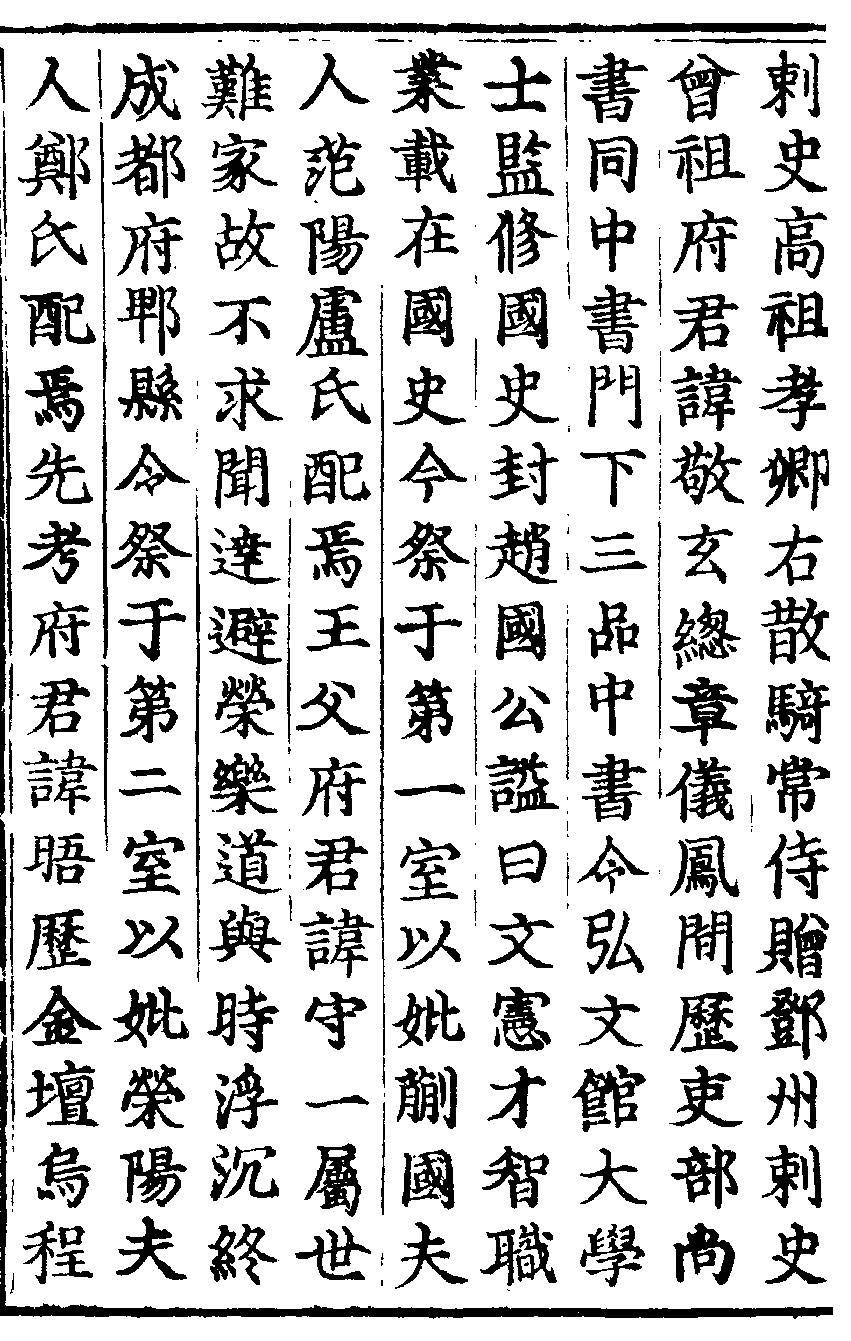 刺史高祖孝卿右散騎常侍贈鄧州刺史
曾祖府君諱敬玄總章儀鳳間歷吏部尚
書同中書門下三品中書令弘文館大學
士監修國史封趙國公謚曰文憲才智職
業載在國史今祭于第一室以妣蒯國夫
人范陽盧氏配焉王父府君諱守一屬世
難家故不求聞達避榮樂道與時浮沉終
成都府郫縣令祭于第二室以妣榮陽夫
人鄭氏配焉先考府君諱晤歷金壇烏程